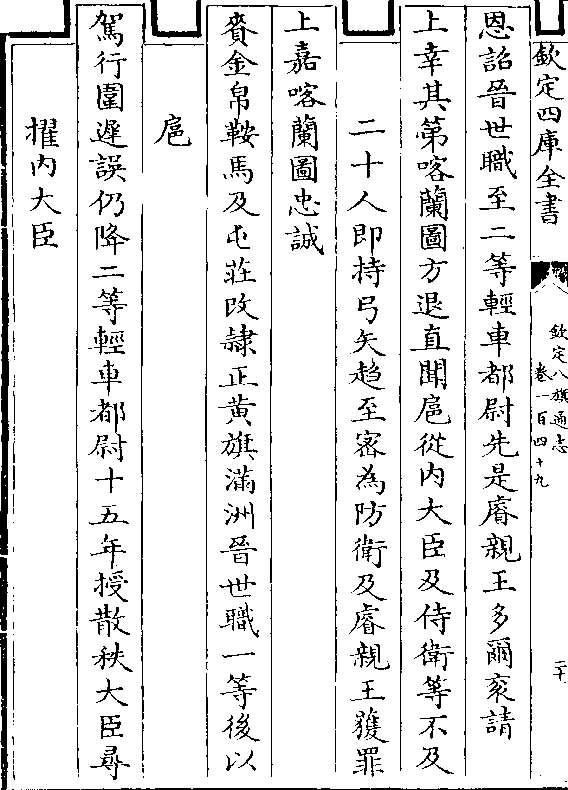 欽定四庫全書
欽定八旗通志
卷一百四十九
二十
恩詔晉世職至二等輕車都尉先是睿親王多爾衮請
上幸其第喀蘭圖方退直聞扈從内大臣及侍衛等不及
二十人即持弓矢趨至密為防衛及睿親王獲罪
上嘉喀蘭圖忠誠
賚金帛鞍馬及屯莊改隷正黄旗滿洲晉世職一等後以
扈
駕行圍遲誤仍降二等輕車都尉十五年授散秩大臣尋
擢内大臣